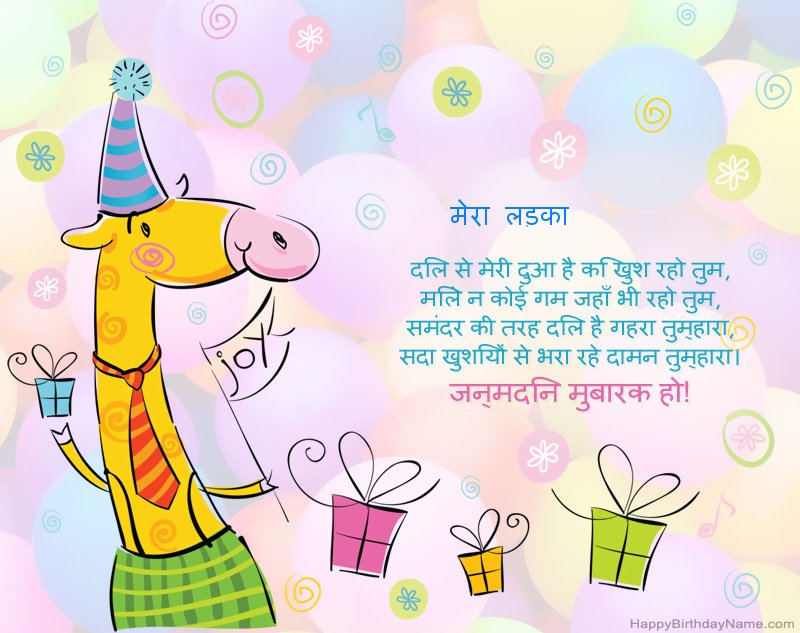 मेरा लड़का
दिल से मेरी दुआ है कि खुश रहो तुम,
मिले न कोई गम जहाँ भी रहो तुम,
समंदर की तरह दिल है गहरा तुम्हारा,
सदा खुशियों से भरा रहे दामन तुम्हारा।
जन्मदिन मुबारक हो!
joy
HappyBirthdayName.com